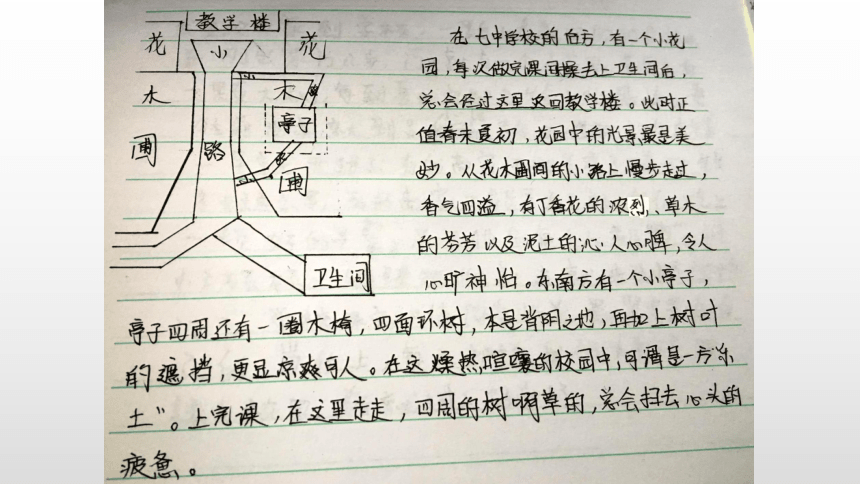 教学楼
花 小 花
木 木
亭子
圃 路 圃
小路
卫生间
在七中学校的西方，有一个小花
园，每次做完课间操去上卫生间后，
总会经过这里返回教学楼。此时正
值春末夏初，花园中的光景最是美
妙。从花木圃间的小路上慢步走过，
香气四溢，有丁香花的浓烈、草木
的芬芳以及泥土的沁人心脾，令人
心旷神怡。东南方有一个小亭子，
亭子四周还有一圈木椅，四面环树，本是背阴之地，再加上树叶
的遮挡，更显凉爽可人。在这燥热喧嚷的校园中，可谓是一方“乐
土”。上完课，在这里走走，四周的树啊草的，总会扫去心头的
疲惫。